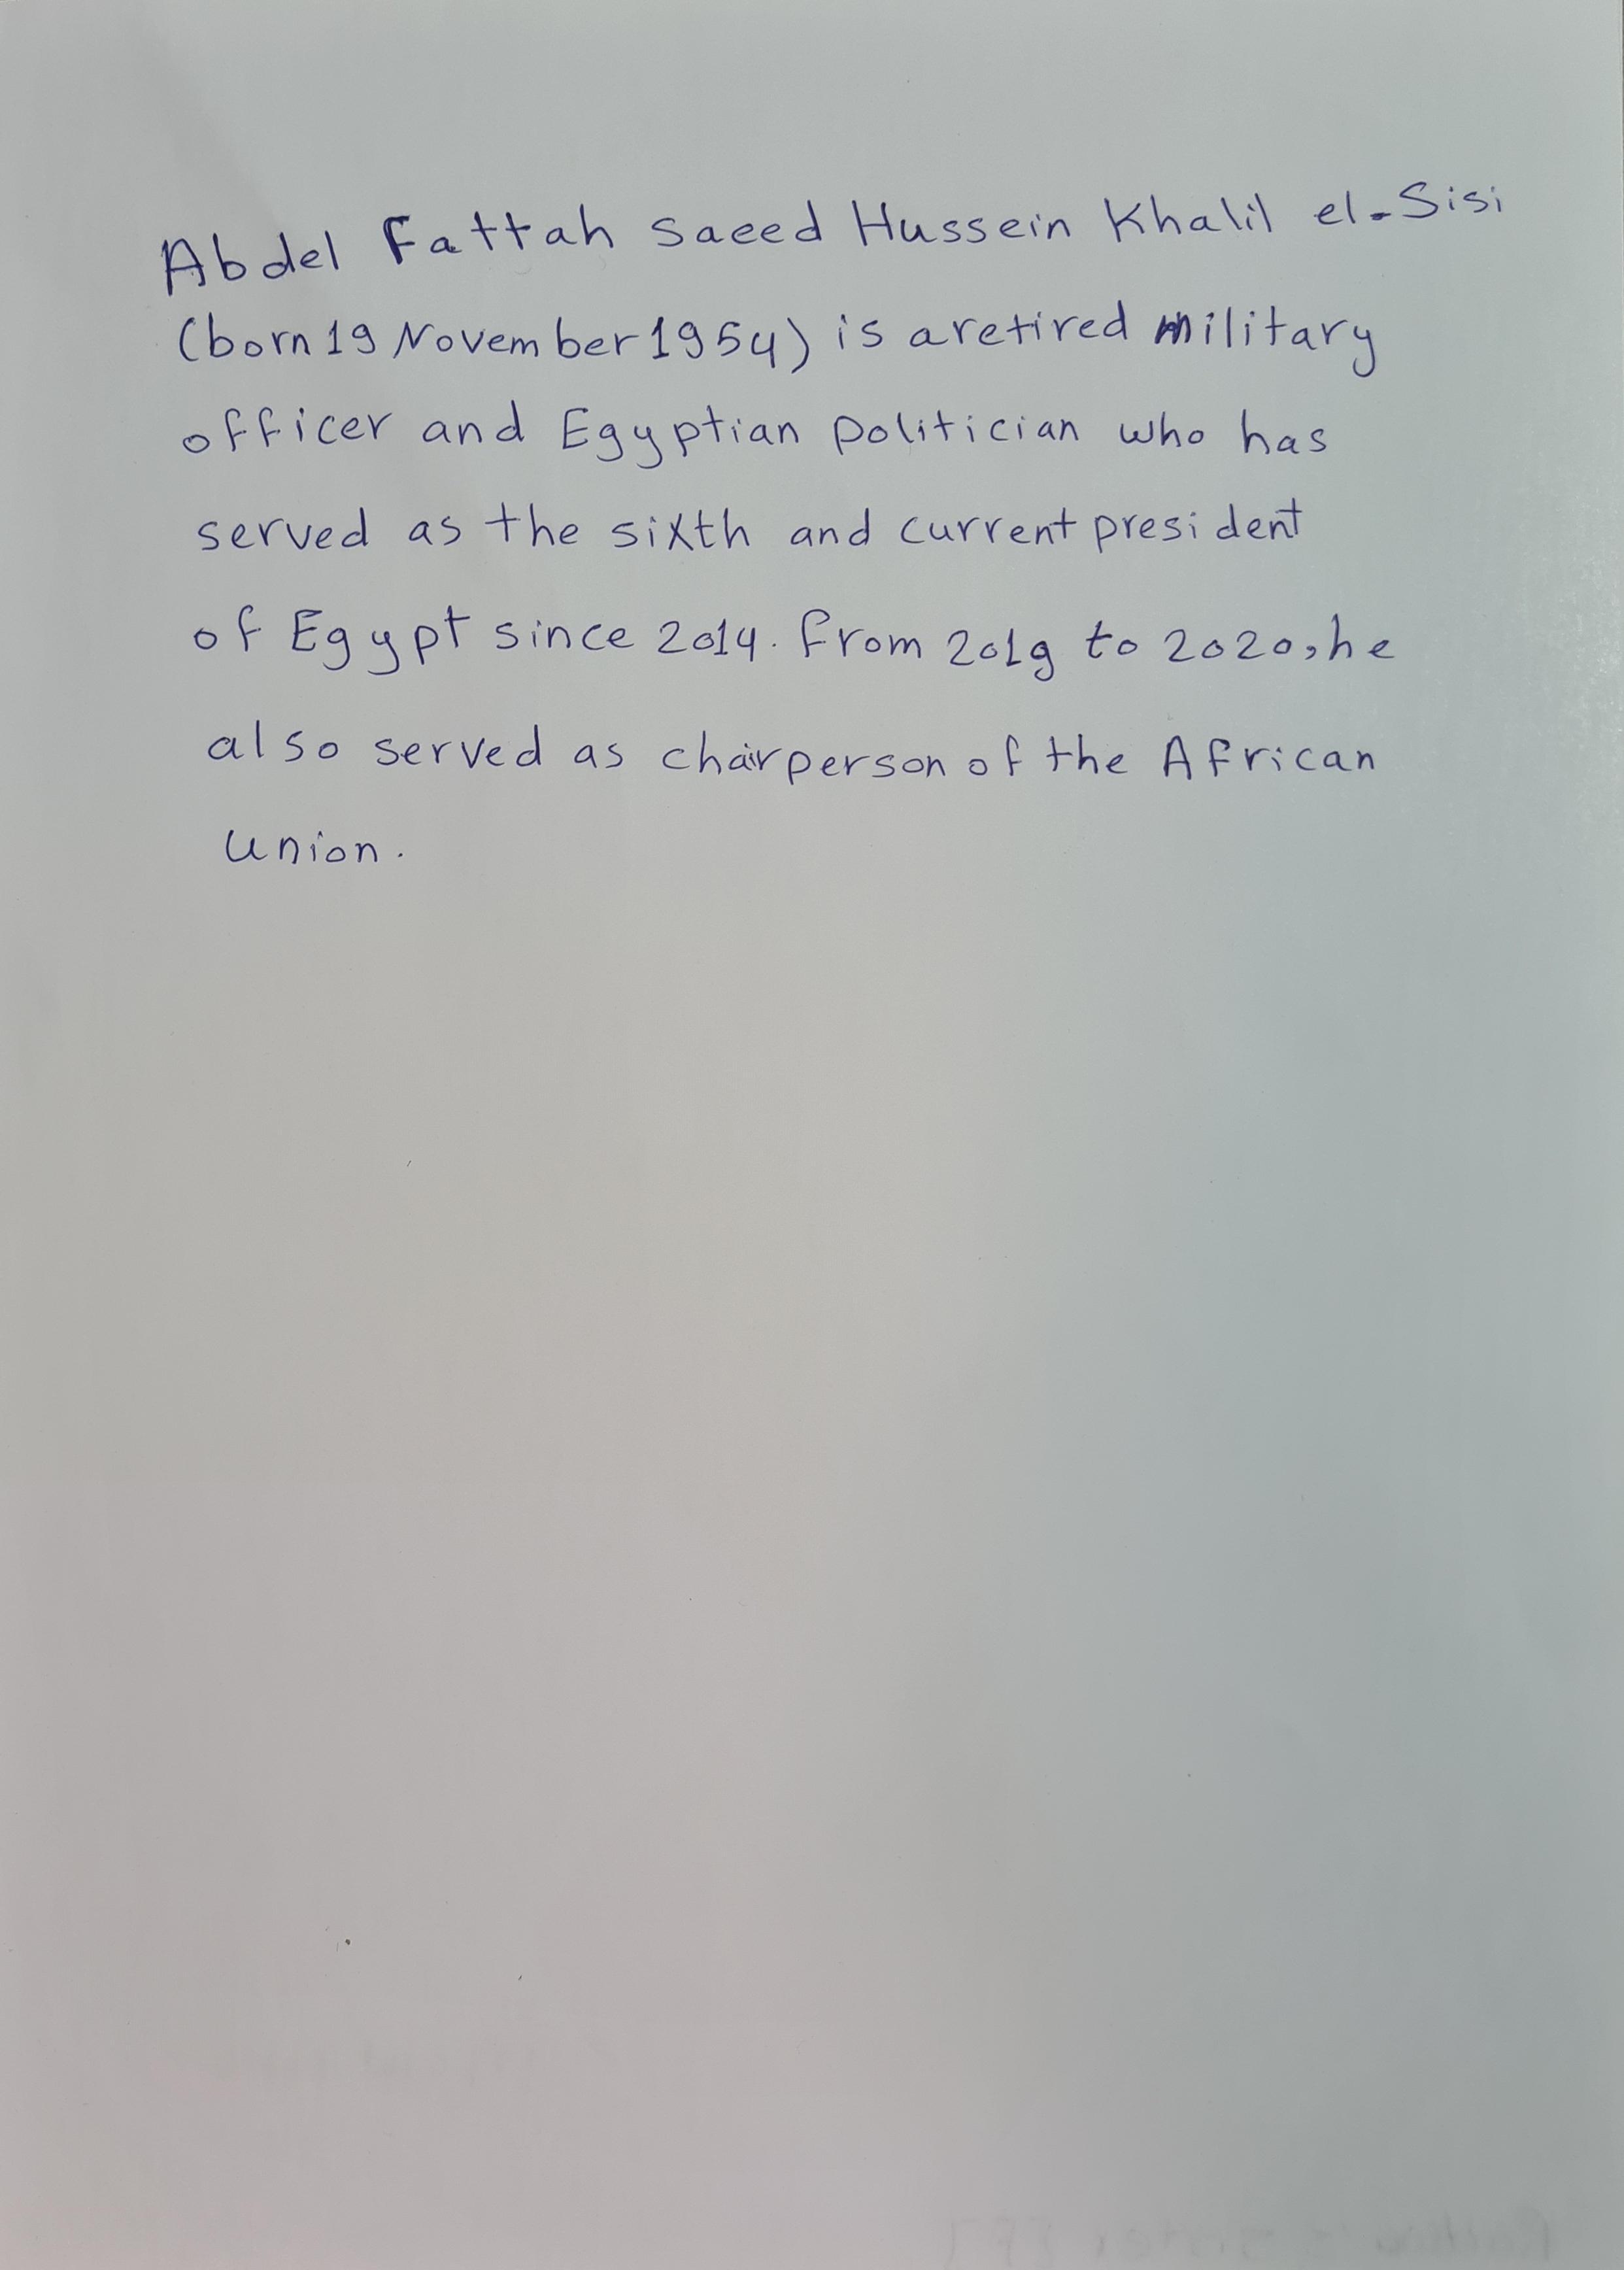 Abdel Fattah Saeed Hussein Khalil el-Sisi
(born 19 November 1954) is a retired military
officer and Egyptian politician who has
served as the sixth and current president
of Egypt since 2014. From 2019 to 2020, he
also served as chairperson of the African
Union.